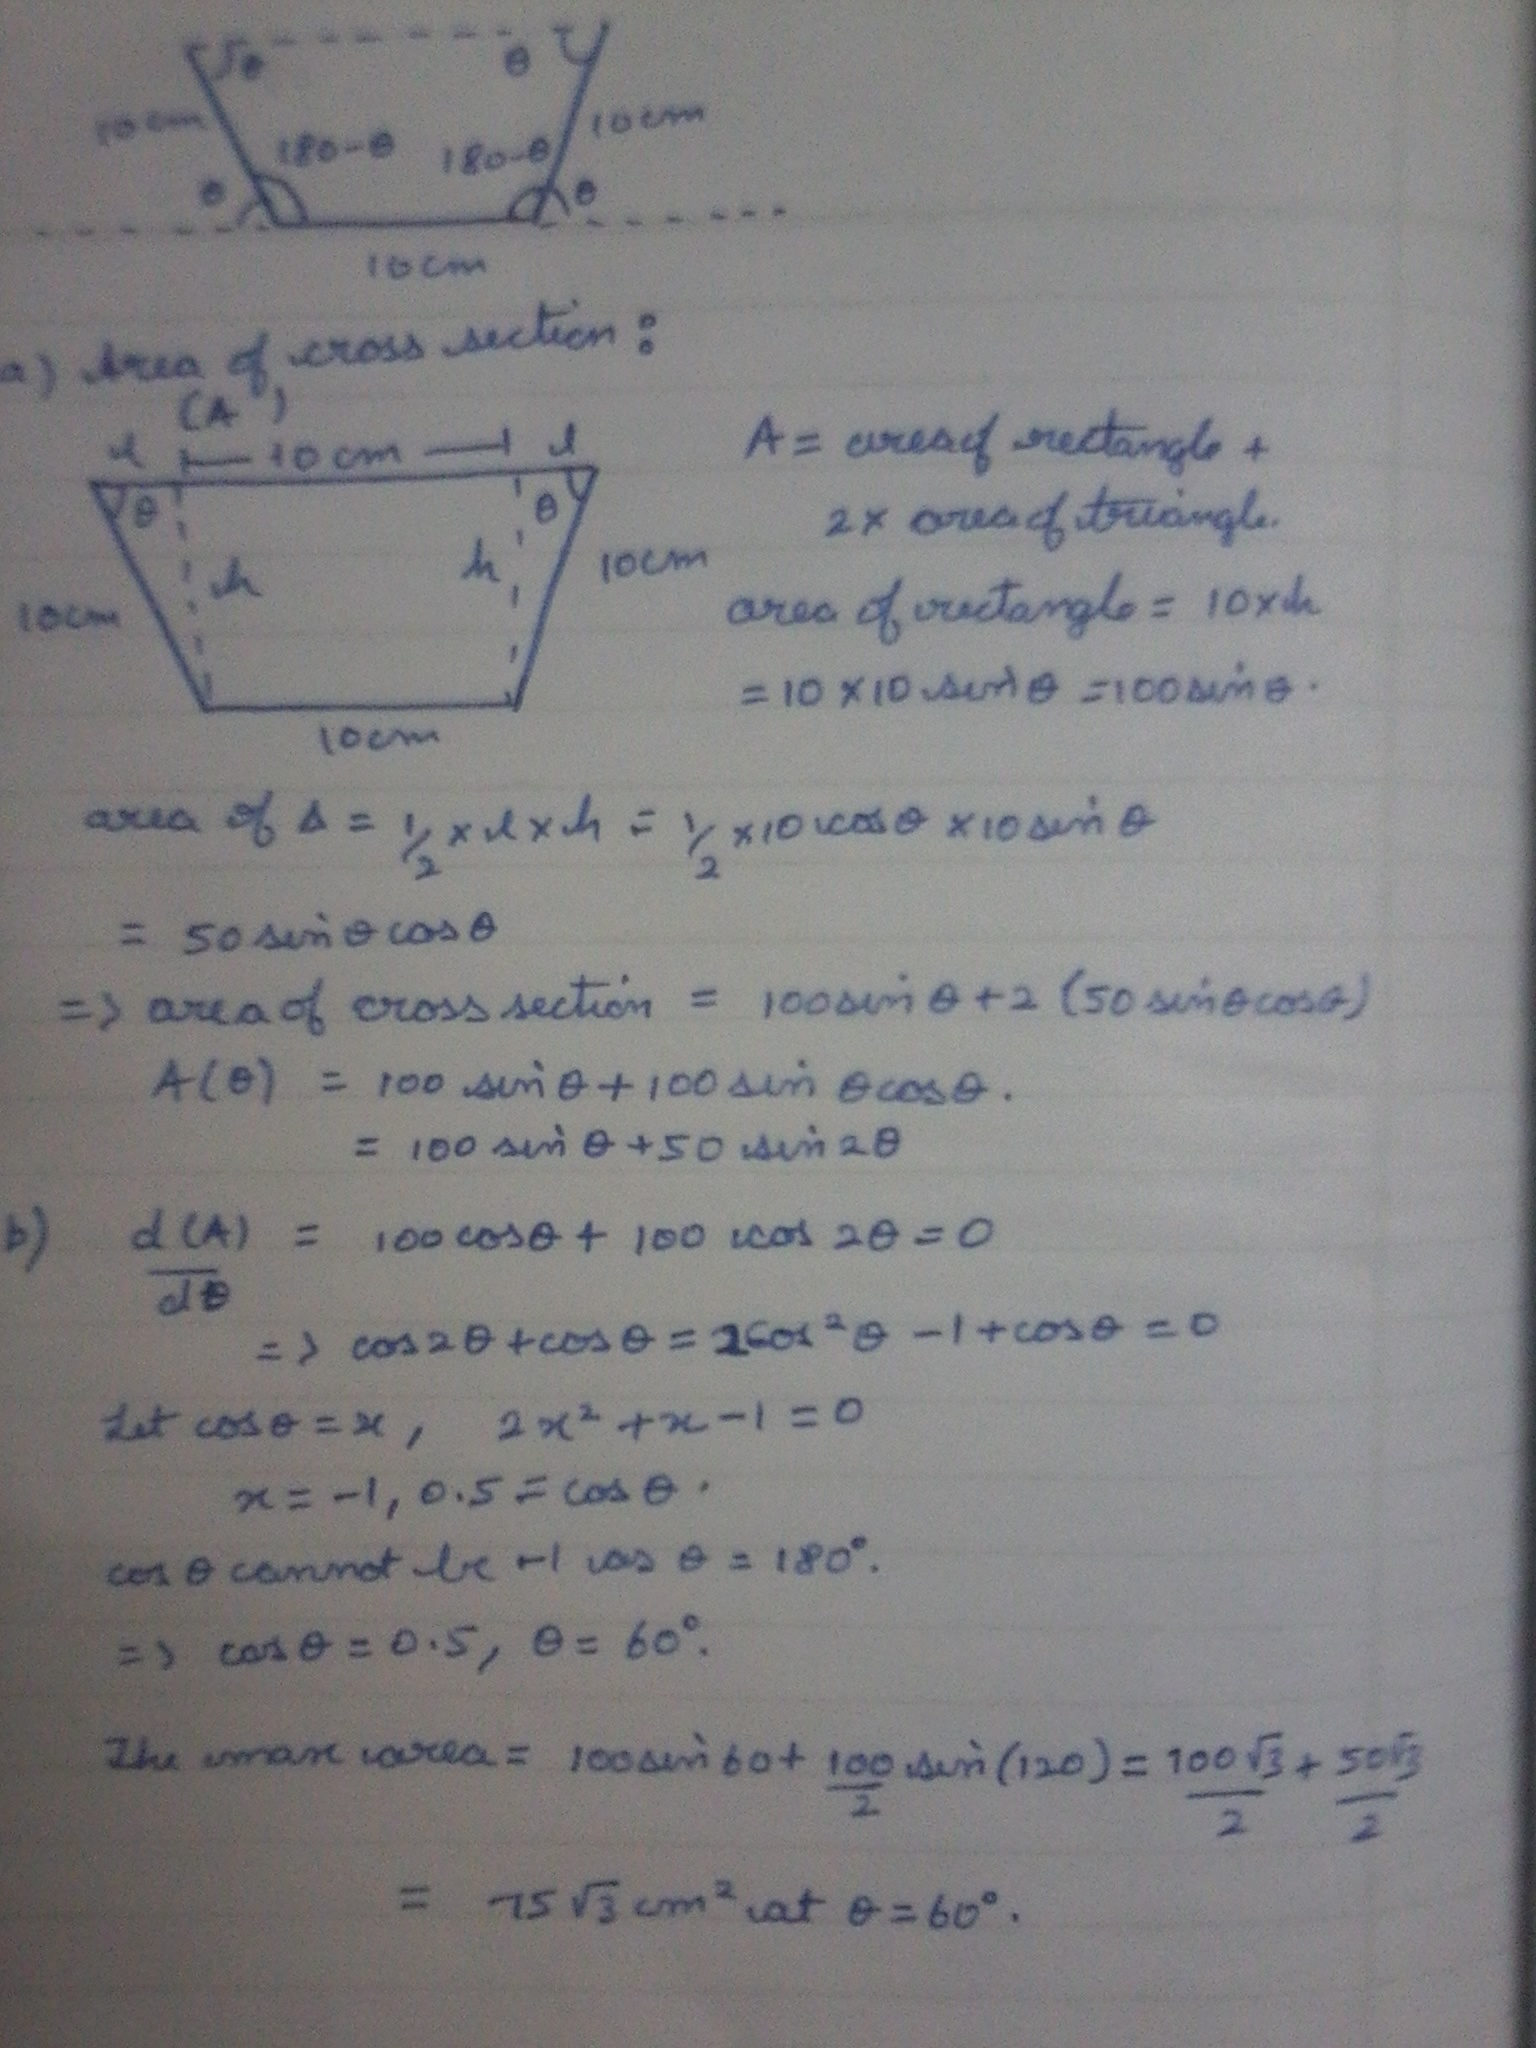 θ θ
10cm 10cm
180-θ 180-θ
θ θ
10cm
a) Area of cross section :
(A)
l 10cm l
θ θ
h h
10cm 10cm
10cm
A = area of rectangle +
2 × area of triangle.
area of rectangle = 10×h
= 10 × 10 sin θ = 100 sin θ.
area of Δ = 1/2 × l × h = 1/2 × 10 cos θ × 10 sin θ
= 50 sin θ cos θ
=> area of cross section = 100 sin θ + 2 (50 sin θ cos θ)
A(θ) = 100 sin θ + 100 sin θ cos θ.
= 100 sin θ + 50 sin 2θ
b) d(A)/dθ = 100 cos θ + 100 cos 2θ = 0
=> cos 2θ + cos θ = 2cos²θ - 1 + cos θ = 0
Let cos θ = x, 2x² + x - 1 = 0
x = -1, 0.5 = cos θ.
cos θ cannot be -1 as θ = 180°.
=> cos θ = 0.5, θ = 60°.
The max area = 100 sin 60 + 100/2 sin (120) = 100√3/2 + 50√3/2
= 75√3 cm² at θ = 60°.